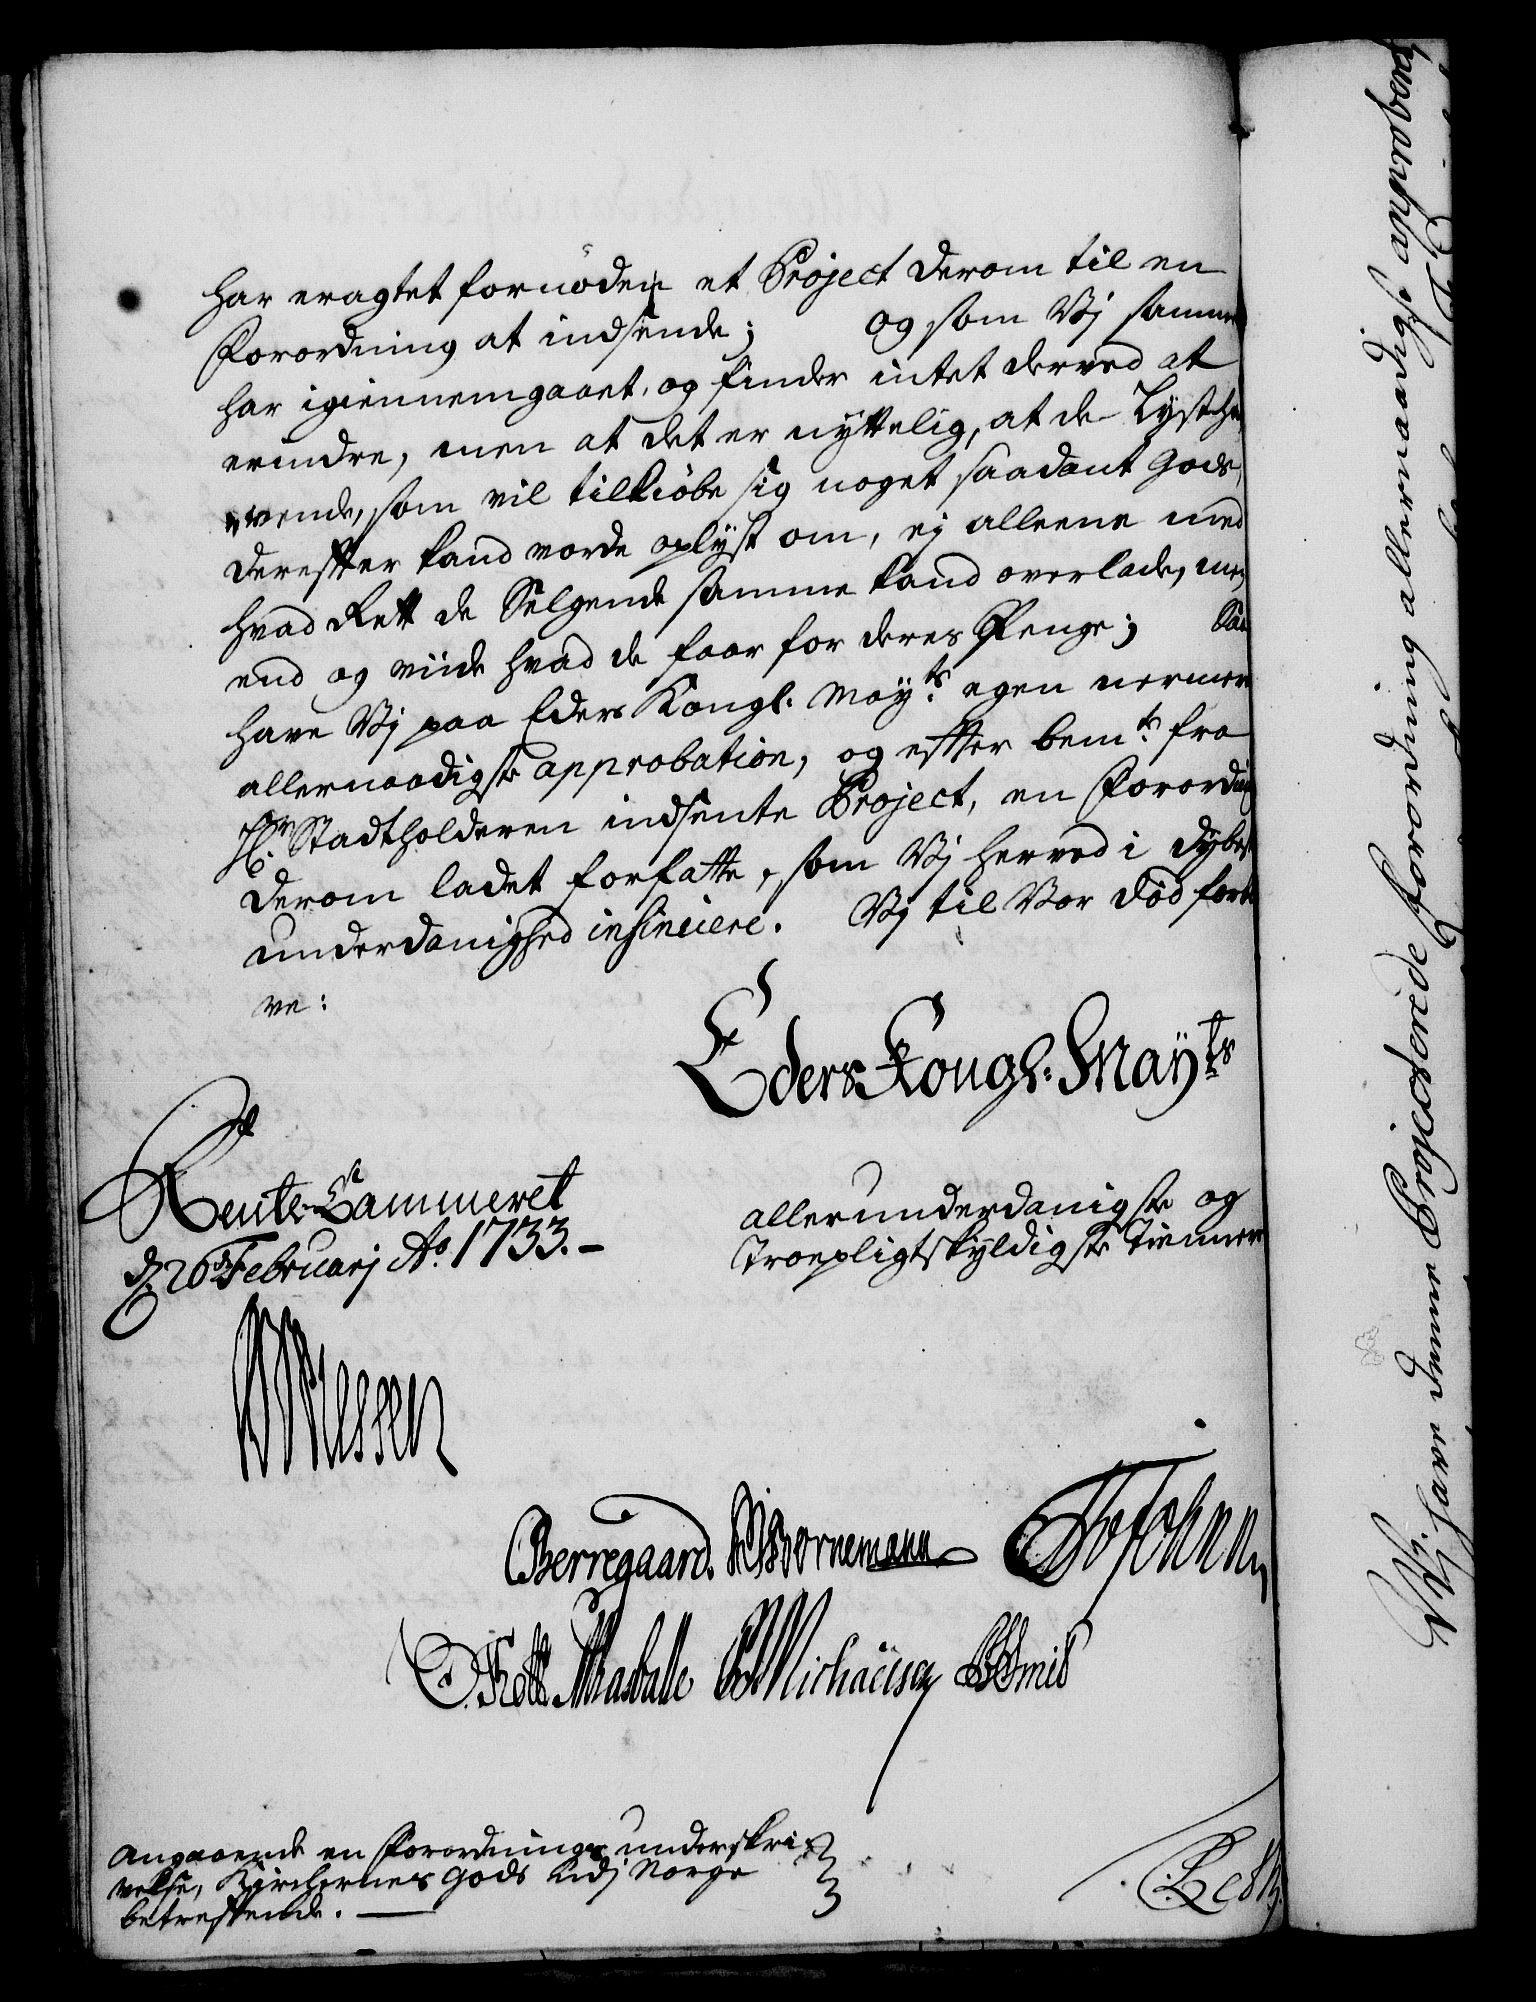 har eragtet fornöden et Project derom til en
Forordning at indsende; og som Vj samme
har igiennemgaaet, og finder intet derved at
erindre, men at det er nyttelig, at de Lystha¬
vende, som vil tilkiöbe sig noget saadant Gods,
derefter kand vorde oplyst om, ej alleene med
hvad Rett de Selgende samme kand overlade, men
end og viide hvad de faar for deres Penge; Saa
have Vj paa Eders Kongl. Mayts egen nermere
allernaadigste approbation, og efter bemte fra
Hr Stadtholderen indsente Project, en Forordning
derom ladet forfatte, som Vj herved i dybeste
underdanighed insinuere. Vj til Vor död forbli
ve:
Eders Kongl. Mayts
Rente-Cammeret
d. 26 Februarj Ao. 1733. –
allerunderdanigste og
Troepligtskyldigste Tienner
Berregaard. Bornemann
C. Thott Michaelsen Smid
Angaaende en Forordnings underskri
velse, Kirchernes Gods udj Norge
betreffende. —
Vj have denne Projecterede Forordning allernaadigst approberet